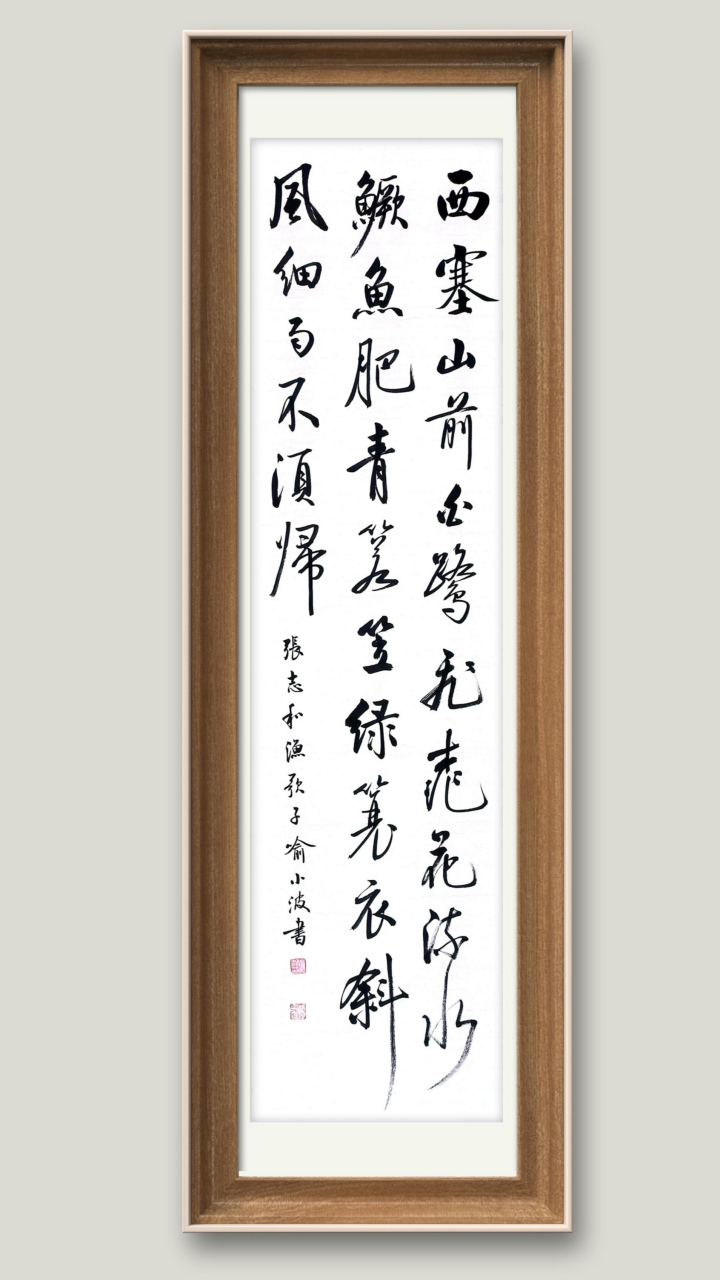 西塞山前白鷺飛桃花流水
鱖魚肥青箬笠緑簑衣斜
風細雨不須帰
張志和漁歌子喻小波書